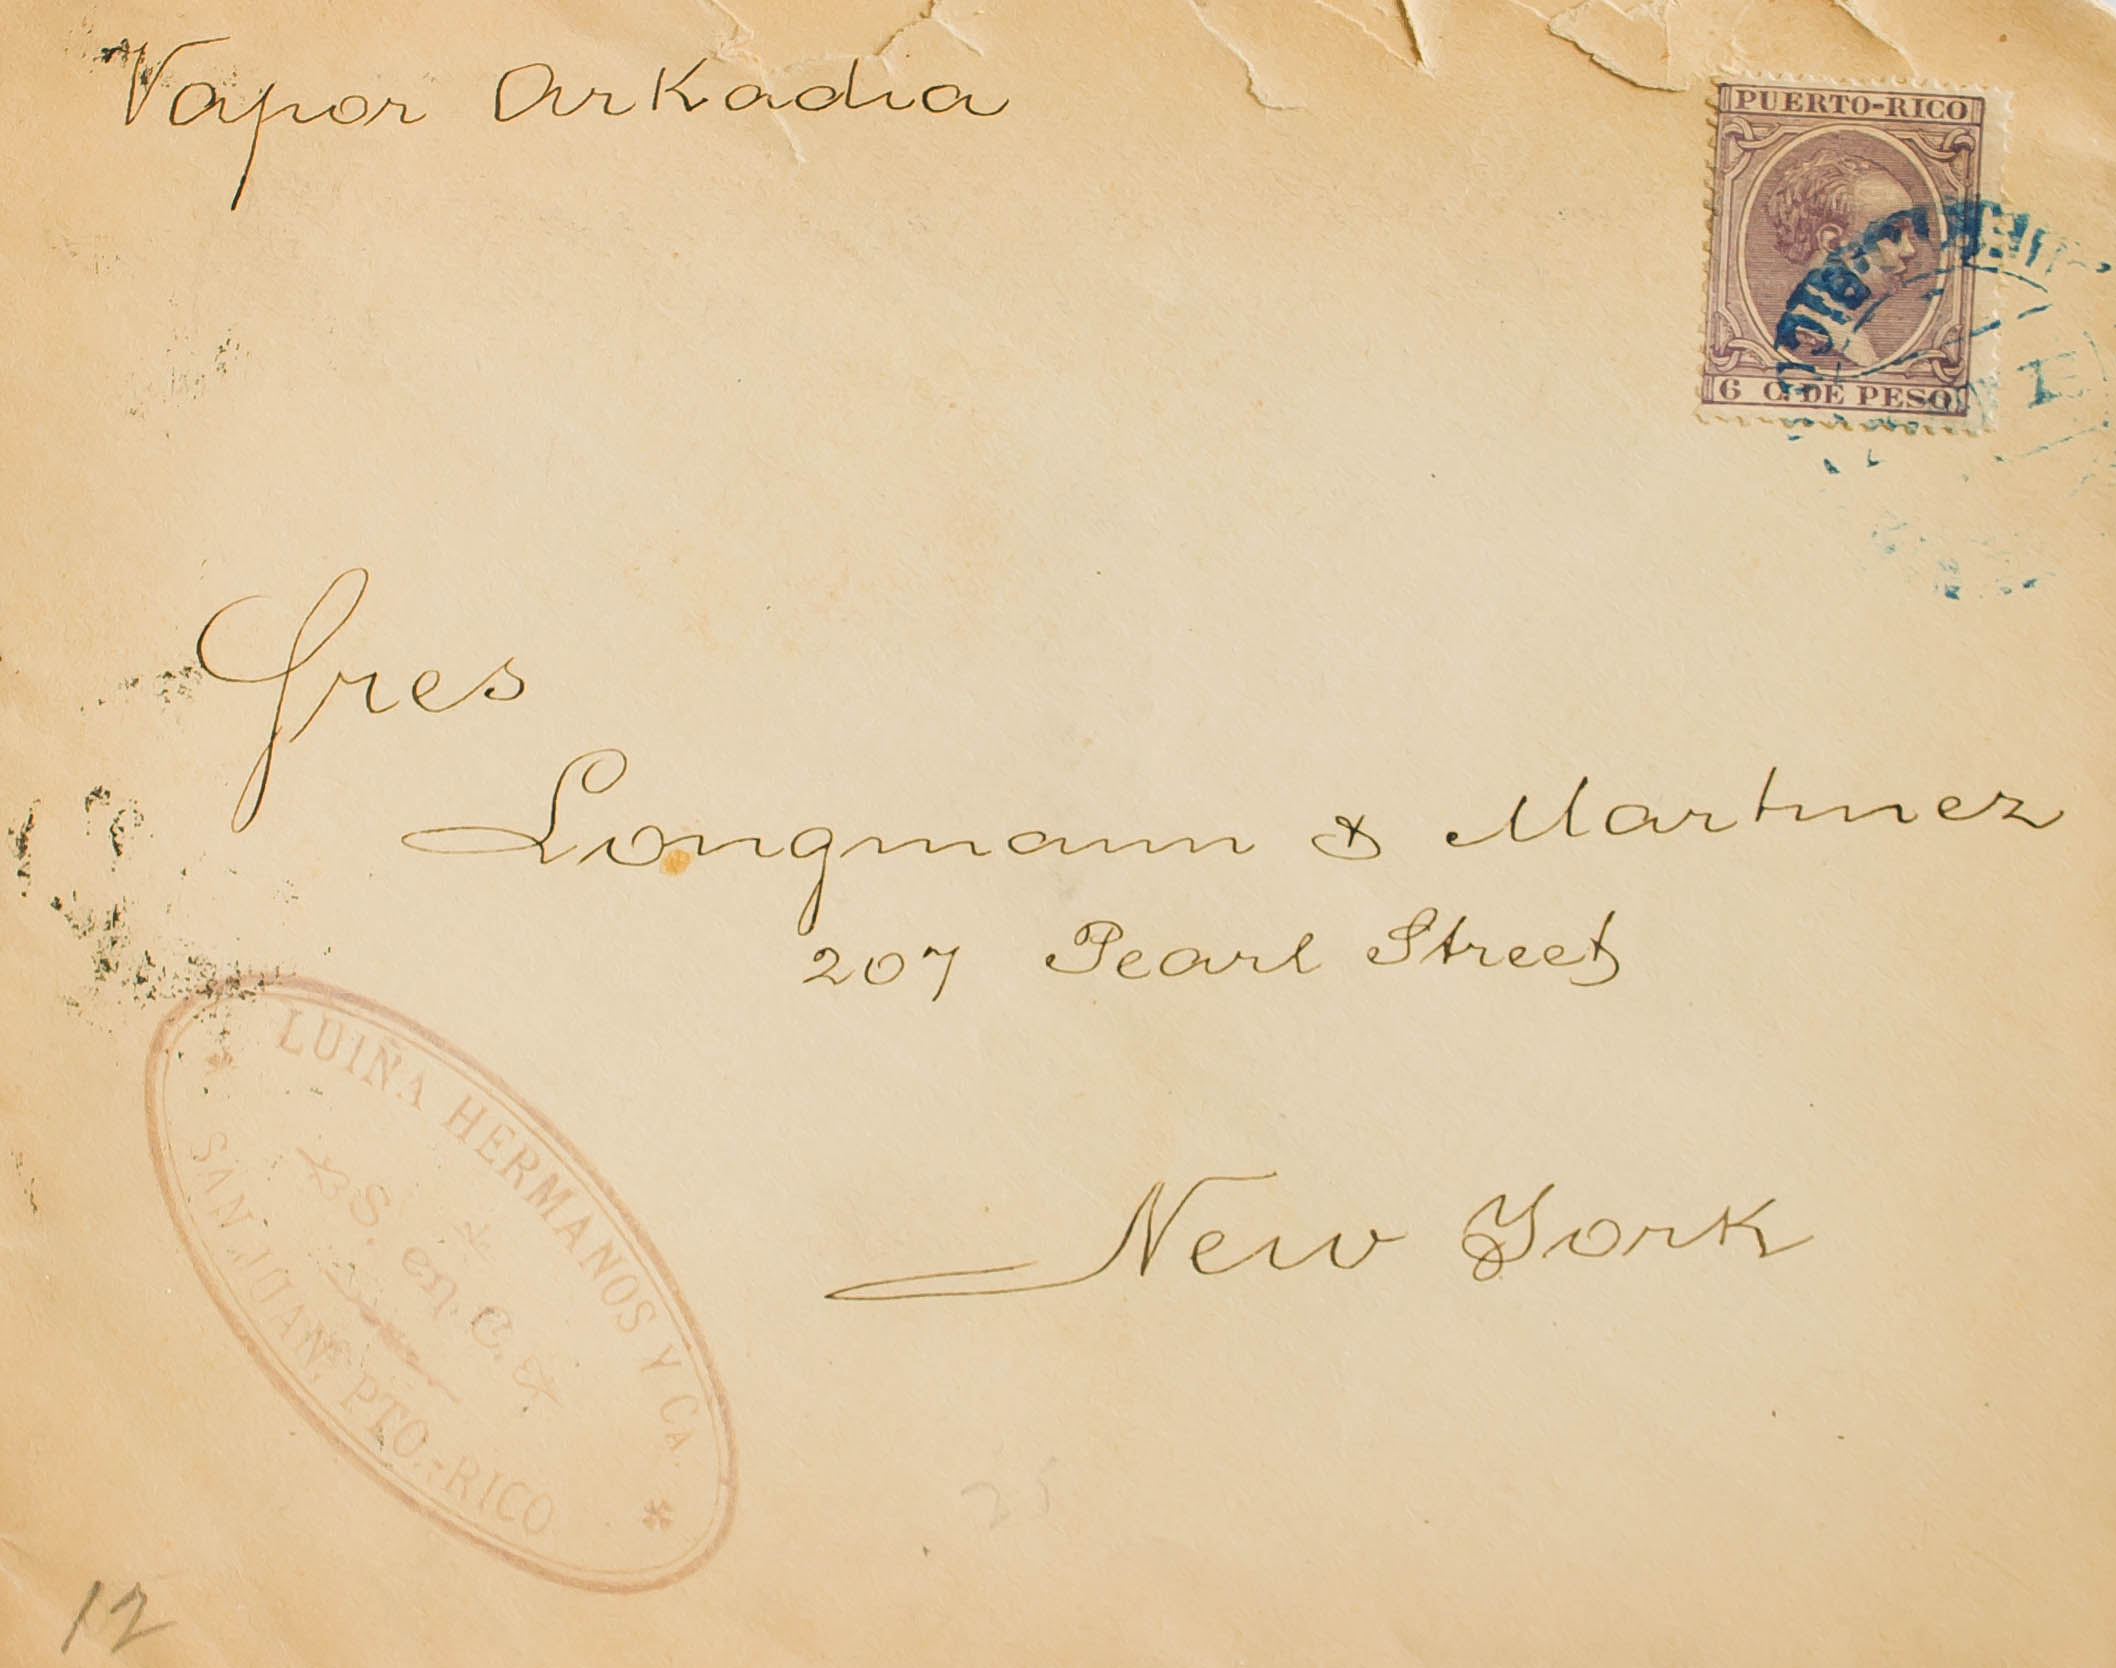 Vapor Arkadia
PUERTO-RICO
6 C. DE PESO
Sres
Longmann & Martinez
207 Pearl Street
New York
LUIÑA HERMANOS Y CA.
S. en C.
SAN JUAN, PTO.-RICO
25
12